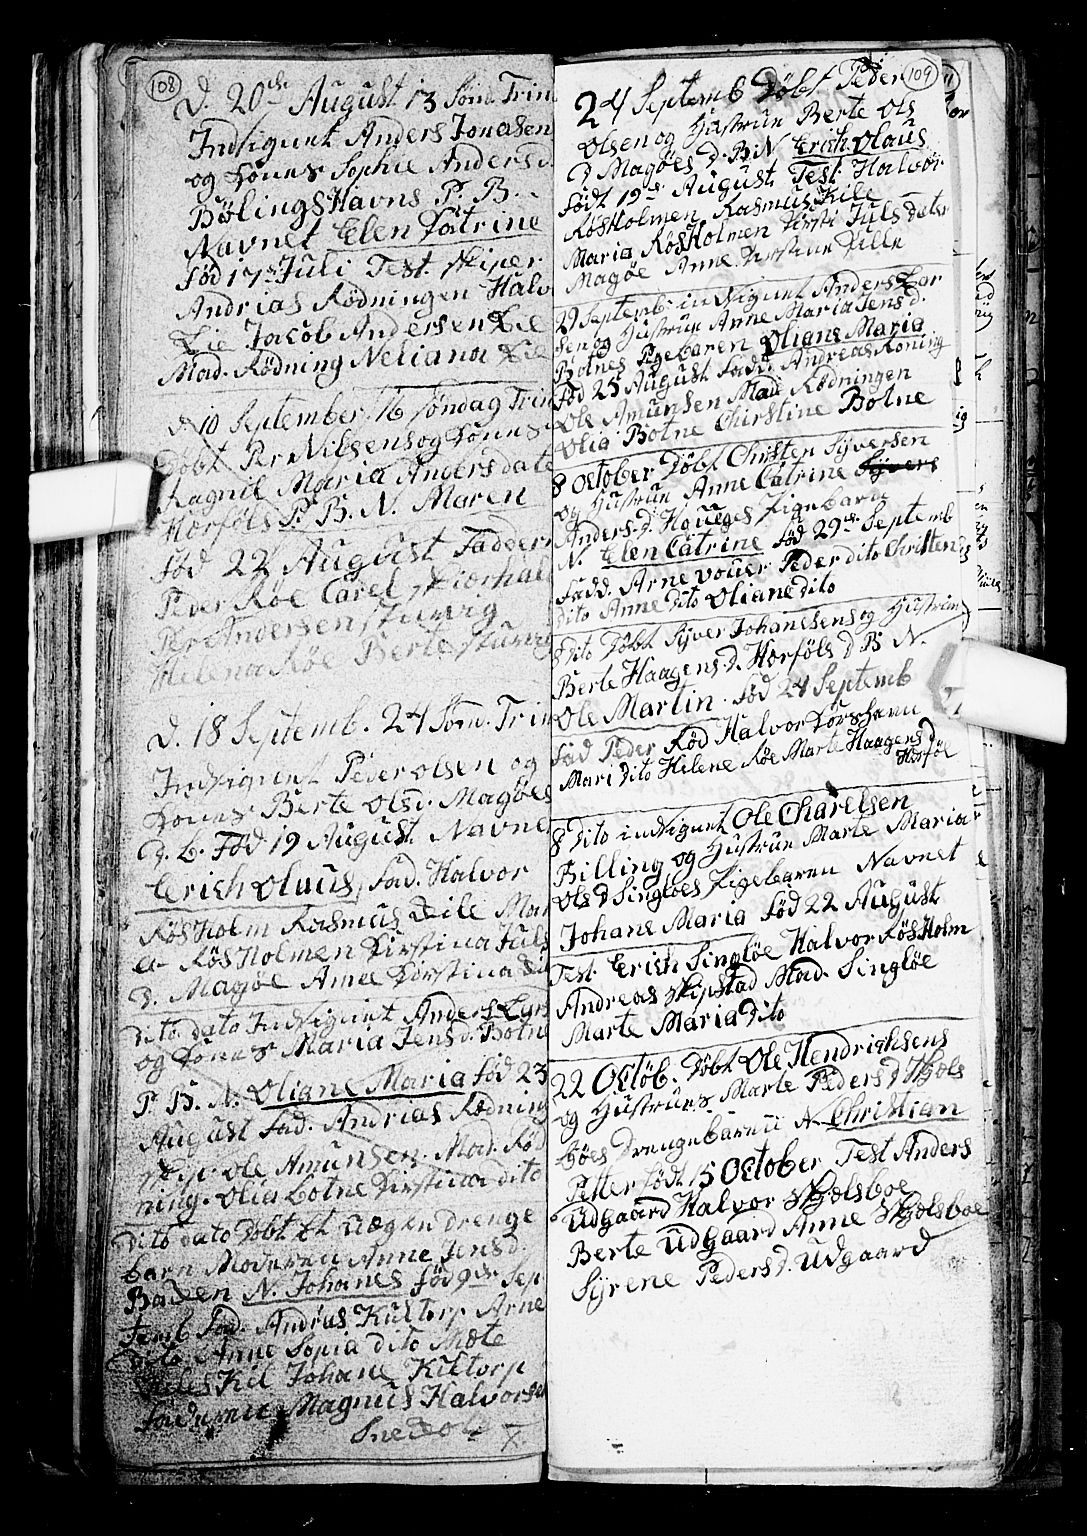 108
D. 20de August 13 Sønd. Trin
Indsigunt Anders Jonasen
og Konnes Sophie Andersd.
BølingsHavns P. B.
Navnet Elen Catrine
fød 17de Juli Test. skiper
Andrias Rødningen Halv
Lie Jacob Andersen Lie
Mad. Rødning Neliana Lie
d 10 September 16 søndag Trin
Døbt Per Nilsens og Konnes
Ragnil Maria Andersdate
Korføls P. B. N. Maren
fød 22 August Faddere
Peder Røe Carel
Per Andersen stuevig
Helena Røe Berte stuevig
d. 18 Septemb. 24 Søn. Trin
Indsigunt Peder olsen og
Konnes Berte olsd. Magøes
D. b. Fød 19 August Navne
Erich olaus, fad. Halvor
RøsHolm Rasmus Kile Mar
a RøsHolmen Kirstina Juls
d. Magøe Anne Kirstina
Dito dato Indsigunt Anders Lars
og Konnes Maria Jensd. Botne
P. B. N. Oliane Maria fød 23
August fad. Andrias Rødning
skip. ole Amunsen. Mad. Rød
ning. olia botne Kirstina dito
Dito dato døbt et uægen drenge
barn Moderen Anne Jensd.
Baden N. Johanes fød 9de Sep
temb fad. Andrias Kultorp Arne
dito Anne Sopia dito Mæte
Kil Johane Kiltorp
faderen Magnus Halvorse
109
24 Septemb Døbt Peder
olsen og Hustrue Berte ols
D Magøes d. B. N Erich olaus
født 19de August Test Halvor
RøsHolmen Rasmus Kile
Maria RøsHolmen Kirsti Juls dater
Magøe Anne Kirstine Kille
29 Septemb. indsigunt Anders Lar
sen og Hustrue Anne Maria Jensd.
Botnes Pigebaren Oliane Maria
fød 23 August fadd. Andreas Røning
Ole Amunsen Mad Rødningen
Olia Botne Chirstine Botne
8 October Døbt Christen Syversen
og Hustrue Anne Catrine Syvers
Anders.d. Houeges Pigebarn
N. Elen Catrine fød 29de Septemb
fadd. Arne vouer Peder dito Christen
dito Anne dito Oliane dito
8 dito Døbt Syver Johanesens og Hustrue
Berte Haagensd. Korføls d B N.
Ole Martin. fød 24 Septemb
fad Peder Rød Halvor Korshavn
Mari dito Helene Røe Marte Haagensd
Korføl
8 dito indsigunt Ole Charelsen
Billing og Hustrue Marte Maria
ols d Singløes Pigebaren Navnet
Johane Maria fød 22 August
Test. Erich Singløe Halvor RøsHolm
Andreas skipstad Mad. Singløe
Marte Maria dito
22 Octøb. Døbt Ole Hendrichsens
og Hustrues Marte Peders d Skjæls
bøes Drengebaren N Christian
Petter født 15 October Test Anders
Udgaard Halvor skjælsboe
Berte Udgaard Anne skjælsboe
Syrene Pedersd. Udgaard